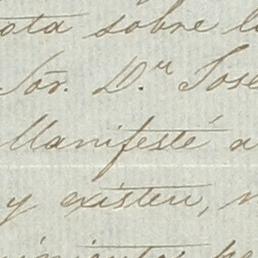 ota sobre l
Sor. D.n José
Manifesté a
y existen,